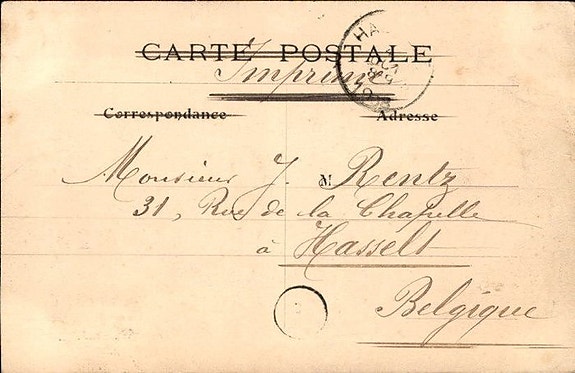 CARTE POSTALE
Imprimé
Correspondance
Adresse
M
Monsieur J. Rentz
31, Rue de la Chapelle
à Hasselt
Belgique